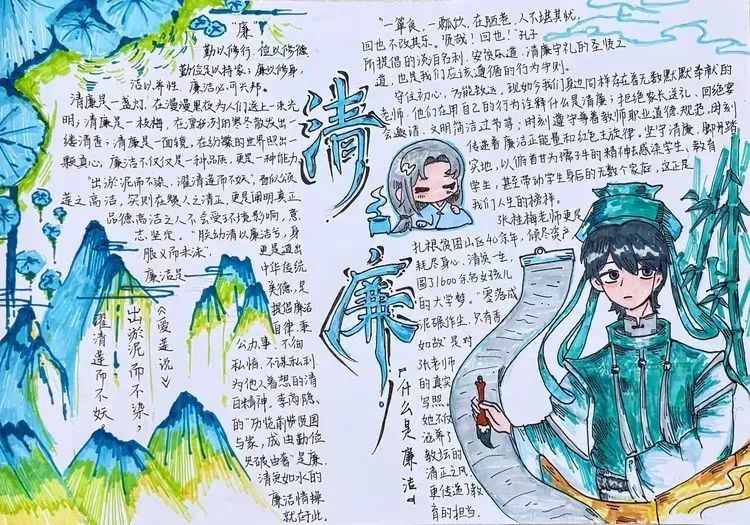 "廉"
勤以修行,俭以修德
勤俭足以持家;廉以修身,
洁以养性,廉洁必可兴邦。
清廉是一盏灯,在漫漫黑夜为人们送上一束光
明;清廉是一枝梅,在凛冽的寒冬散发出一
缕清香;清廉是一面镜,在纷繁的世界照出一
颗真心,廉洁不仅仅是一种品质,更是一种能力
"出淤泥而不染,濯清莲而不妖",看似颂
莲之高洁,实则在赞人之清正,更是阐明真正
品德高洁之人不会受环境影响,意
志坚定。"朕幼清以廉洁兮,身
服义而未沫"
廉洁是
更是道出
中华传统
美德,是
提倡廉洁
自律,秉
公办事,不徇
私情,不谋私利
为他人着想的清
白精神。李商隐
的"历览前贤国
与家,成由勤俭
破由奢"是廉,
清爽如水的
廉洁情操
就在于此.
《爱莲说》
出淤泥而不染,
濯清莲而不妖。
清廉。
『什么是廉洁』
"一箪食,一瓢饮,在陋巷,人不堪其忧,
回也不改其乐。贤哉!回也!"孔子
所提倡的淡泊名利,安贫乐道,清廉守礼的圣贤之
道,也是我们应该遵循的行为守则。
守住初心,方能致远,现如今我们身边同样存在着无数默默奉献的
老师,他们在用自己的行为诠释什么是清廉;拒绝家长送礼、回绝宴
会邀请、文明简洁过节等;时刻遵守着教师职业道德规范,时刻
传递着廉洁正能量和红色主旋律。坚守清廉,脚踏踏
实地,以俯首甘为孺子牛的精神去感染学生,教育
学生,甚至带动学生身后的无数个家庭,这正是
我们人生的榜样。
张桂梅老师更是
扎根贫困山区40余年,倾尽资产
耗尽身心,清贫一生,
圆了1600余名女孩儿
的大学梦。"零落成
泥碾作尘,只有香
如故"是对
张老师
的真实
写照
她不仅
涵养了
教坛的
清正之风
更传递了教
育的担当.